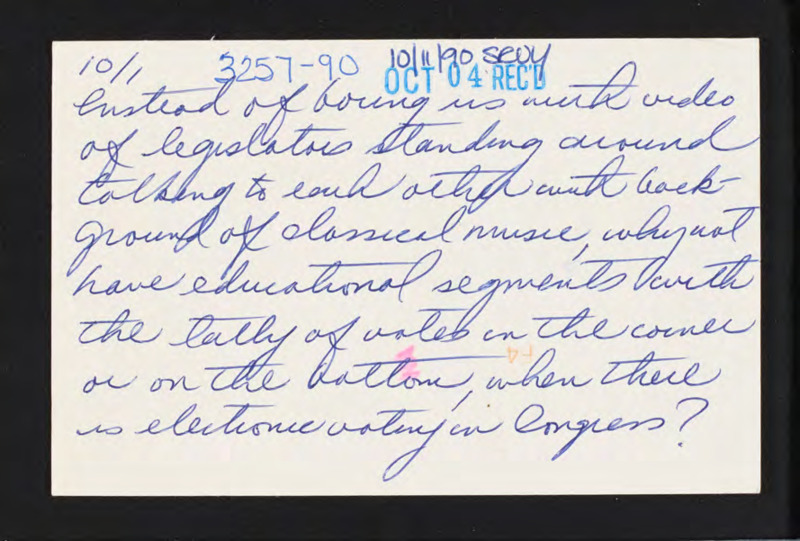 10/1 3257-90 10/11/90
OCT 04 REC'D
Instead of boring us with video
of legislators standing around
talking to each other with back-
ground of classical music, why not
have educational segments with
the tally of votes in the corner
or on the bottom, when there
is electronic voting in Congress?